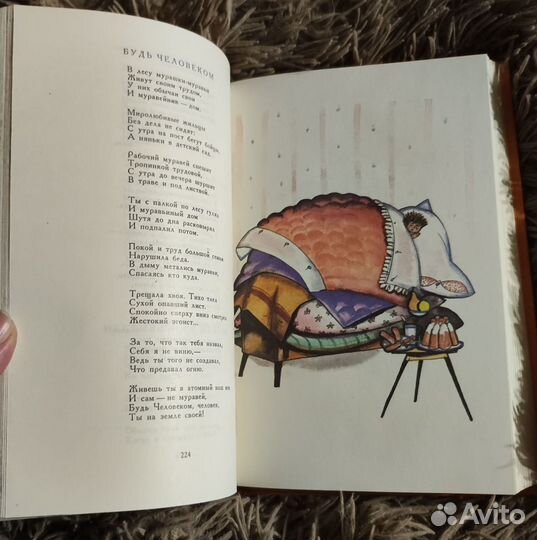 БУДЬ ЧЕЛОВЕКОМ
В лесу мурашки-муравьи
Живут своим трудом,
У них обычаи свои
И муравейник — дом.
Миролюбивые жильцы
Без дела не сидят:
С утра на пост бегут бойцы,
А няньки в детский сад.
Рабочий муравей спешит
Тропинкой трудовой,
С утра до вечера шуршит
В траве и под листвой.
Ты с палкой по лесу гулял
И муравьиный дом
Шутя до дна расковырял
И подпалил потом.
Покой и труд большой семьи
Нарушила беда.
В дыму метались муравьи,
Спасаясь кто куда.
Трещала хвоя. Тихо тлел
Сухой опавший лист.
Спокойно сверху вниз смотрел
Жестокий эгоист...
За то, что так тебя назвал,
Себя я не виню,—
Ведь ты того не создавал,
Что предавал огню.
Живешь ты в атомный наш век
И сам — не муравей,
Будь Человеком, человек,
Ты на земле своей!
224
Avito